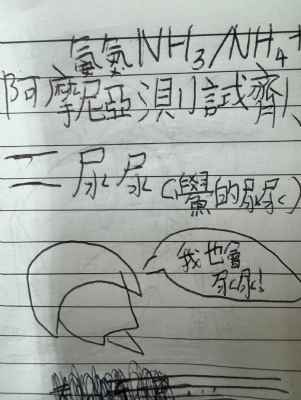 氮NH₃/NH₄⁺
阿摩尼亞測試劑
=尿尿(鱟的尿尿)
我也會
尿尿!